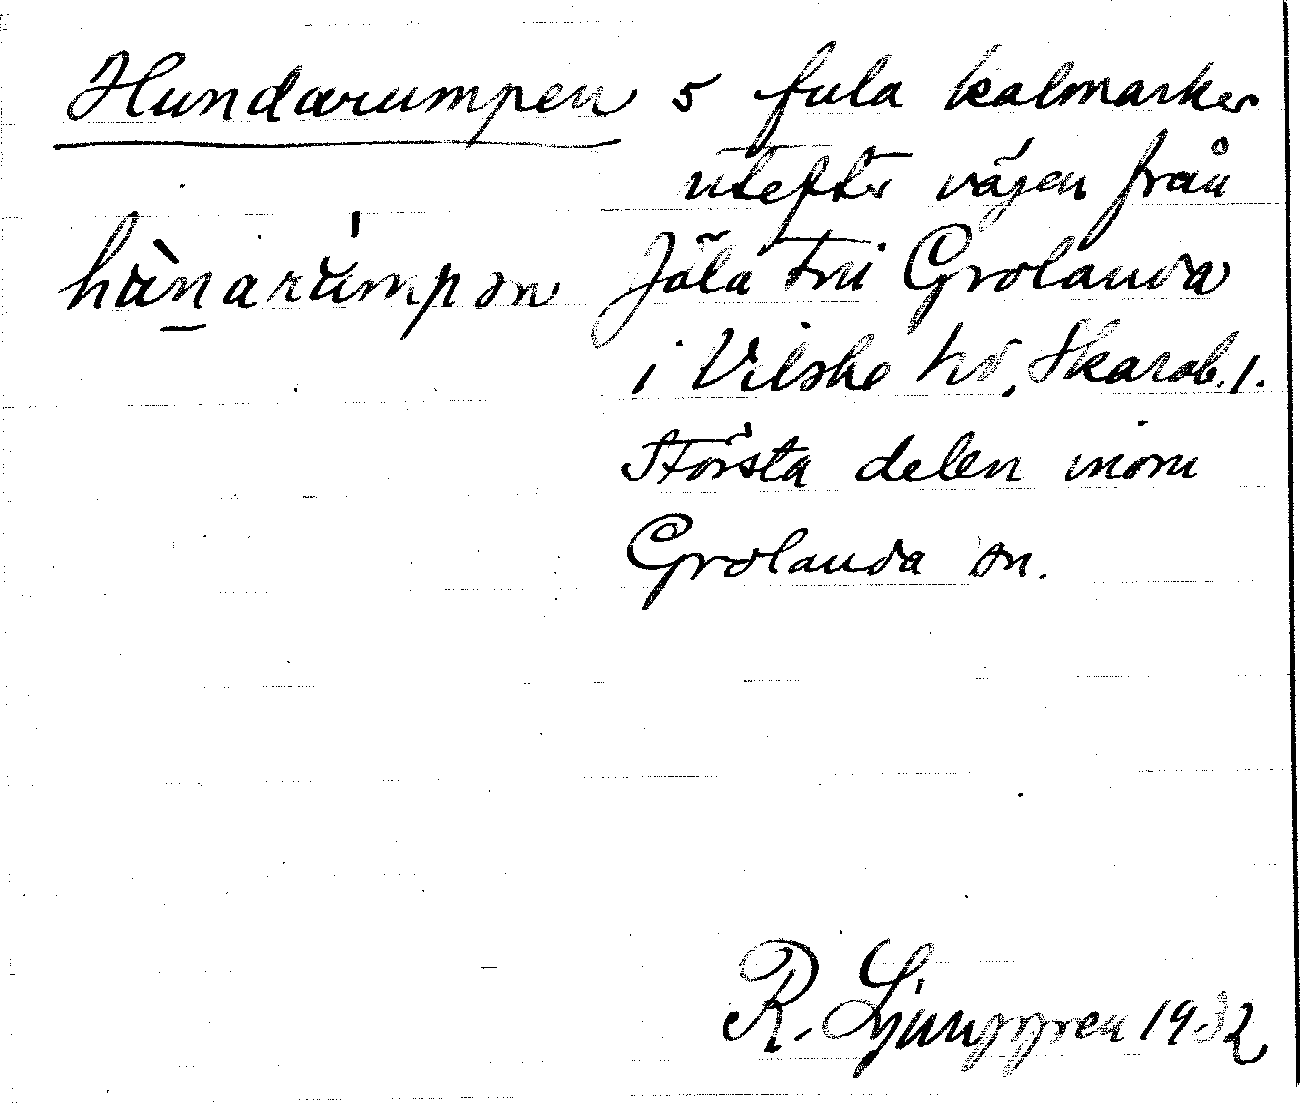 Hundarumpen 5 fula kalmarker
utefter vägen från
hànarúmpən Jäla till Grolanda
i Vilske hd, Skarab. l.
Största delen inom
Grolanda sn.
R. Ljunggren 1932